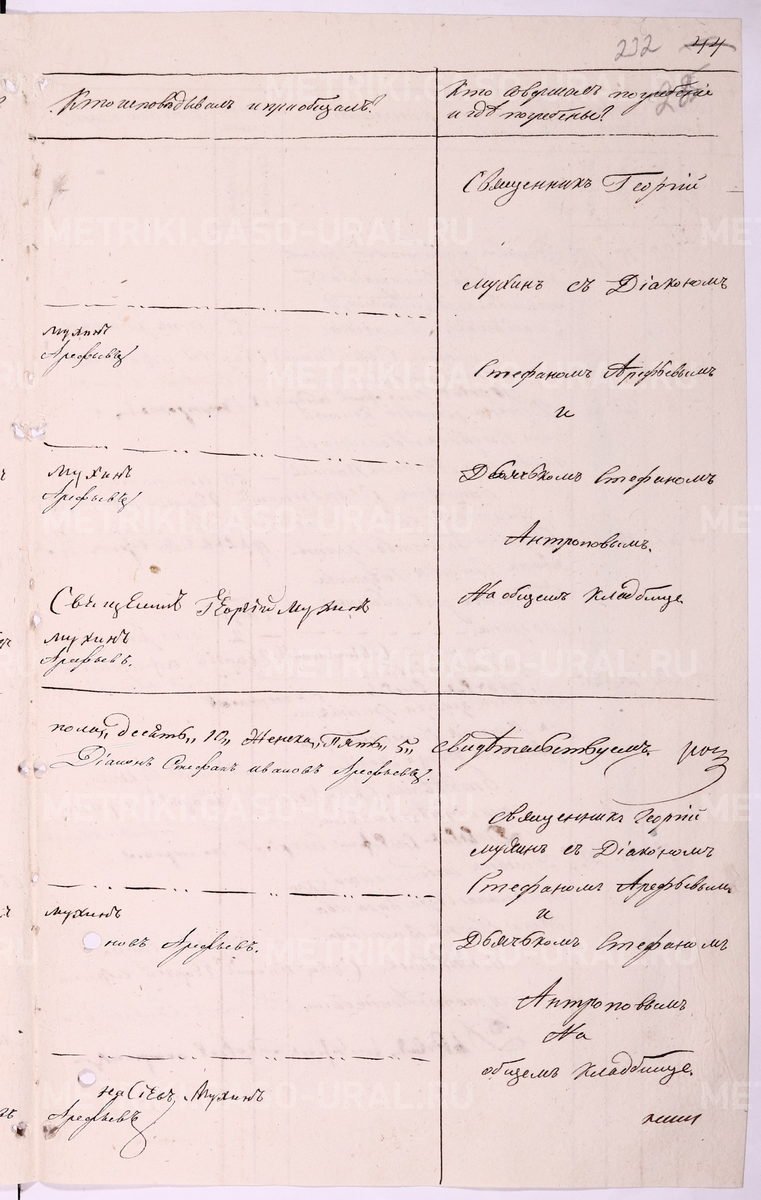 232 44
28
Кто исповѣдывалъ и пріобщалъ?
Кто совершалъ погребеніе
и гдѣ погребены?
Священникъ Георгій
Мухинъ съ Діакономъ
Стефаномъ Арефьевымъ
и
Дьячькомъ Стефаномъ
Антроповымъ.
На общемъ кладбище
Мухинъ
Арефьевъ
Мухинъ
Арефьевъ
Священникъ Георгій Мухинъ
Мухинъ
Арефьевъ.
пола„ десять„ 10„ Женска„ Пять„ 5„ свидѣтельствуемъ.
Діаконъ Стефанъ Ивановъ Арефьевъ.
Священникъ Георгій
Мухинъ съ Діакономъ
Стефаномъ Арефьевымъ
и
Дьячькомъ Стефаномъ
Антроповымъ
На
общемъ кладбище.
Мухинъ
новъ Арефьевъ.
Мухинъ
Арефьевъ
METRIKI.GASO-URAL.RU